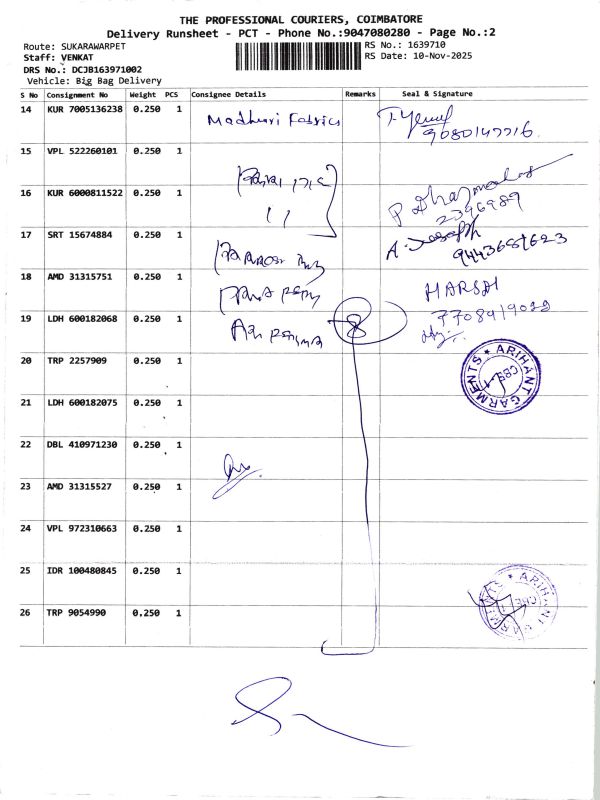 THE PROFESSIONAL COURIERS, COIMBATORE
Delivery Runsheet - PCT - Phone No.:9047080280 - Page No.:2
Route: SUKARAWARPET
RS No.: 1639710
Staff: VENKAT
RS Date: 10-Nov-2025
DRS No.: DCJB163971002
Vehicle: Big Bag Delivery
S No Consignment No Weight PCS Consignee Details Remarks Seal & Signature
14 KUR 7005136238 0.250 1 Madhuri Fabrics
9080147716
15 VPL 522260101 0.250 1
16 KUR 6000811522 0.250 1
2396989
17 SRT 15674884 0.250 1 A. Joseph
18 AMD 31315751 0.250 1 HARSH
19 LDH 600182068 0.250 1
20 TRP 2257909 0.250 1 ARIHANT GARMENTS CBE
21 LDH 600182075 0.250 1
22 DBL 410971230 0.250 1
23 AMD 31315527 0.250 1
24 VPL 972310663 0.250 1
25 IDR 100480845 0.250 1 ARIHANT GARMENTS CBE
26 TRP 9054990 0.250 1